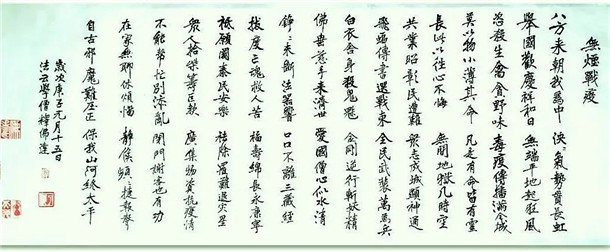 無煙戰疫
八方来朝我為中 泱泱氣勢貫長虹
舉國歡慶祥和日 無端平地起狂風
為殺生禽食野味 毒疫傳播滿城
莫以物小薄其命 凡是有命皆有靈
長此以往心不悔 無間地獄几時空
共業昭彰民遭難 衆志成城顯神通
飛鴿傳書選戰東 全民武裝萬萬兵
白衣舍身殺鬼魁 金剛逆行斬妖精
佛慈手来濟世 愛國僧心似水清
錚錚来斷法器響 口口不離三藏經
拔度亡魂救人苦 福壽綿長永康寧
祗願國泰民安樂 祛除罹難退灾星
衆人拾柴籌巨款 廣集物資抗疫清
不能幫忙別添亂 閉門謝客也有功
在家無聊休煩惱 靜候頻頻捷報聲
自古邪魔難压正 保我山河終太平
歲次庚子元月十五日
法云學僧釋佛蓮